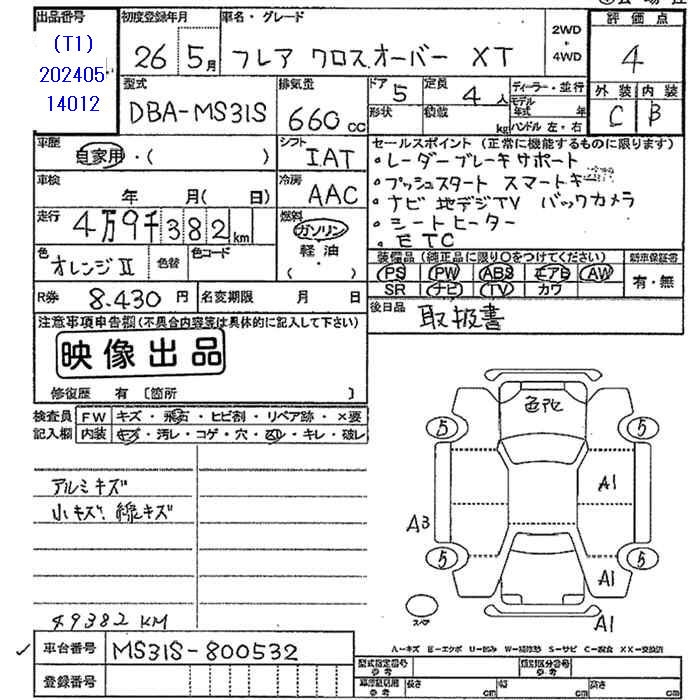 出品番号
(T1)
202405
14012
初度登録年月
26 5月
車名・グレード
フレア クロスオーバー XT
2WD
・
4WD
評価点
4
外装 内装
C B
型式
DBA-MS31S
排気量
660 cc
ドア
5
形状
定員
4人
積載
kg
ディーラー・並行
モデル
年式 年
ハンドル 左・右
車歴
自家用・( )
シフト
IAT
車検
年 月( 日)
冷房
AAC
走行
4万9千382 km
燃料
ガソリン
軽油
( ・ )
色
オレンジⅡ
色替
色コード
R券 8.430 円
名変期限 月 日
セールスポイント (正常に機能するものに限ります)
・レーダーブレーキサポート
・プッシュスタート スマートキー
・ナビ 地デジTV バックカメラ
・シートヒーター
・ETC
装備品 (純正品に限り○をつけてください)
PS PW ABS エアB AW
SR ナビ TV カワ
新車保証書
有・無
後日品
取扱書
注意事項申告欄(不具合内容等は具体的に記入して下さい)
映像出品
修復歴 有 〔箇所 〕
検査員
記入欄
FW キズ・飛石・ヒビ割・リペア跡・×要
内装 キズ・汚レ・コゲ・穴・スレ・キレ・破レ
アルミキズ
小キズ、線キズ
49382 KM
色アセ
5 5
A1
A3
5 5
A1
A1
スペア
A-キズ E-エクボ U-凹み W-補修跡 S-サビ C-腐食 XX-交換済
車台番号 MS31S-800532
登録番号
型式指定番号
参考
類別区分番号
参考
長さ cm
幅 cm
高さ cm